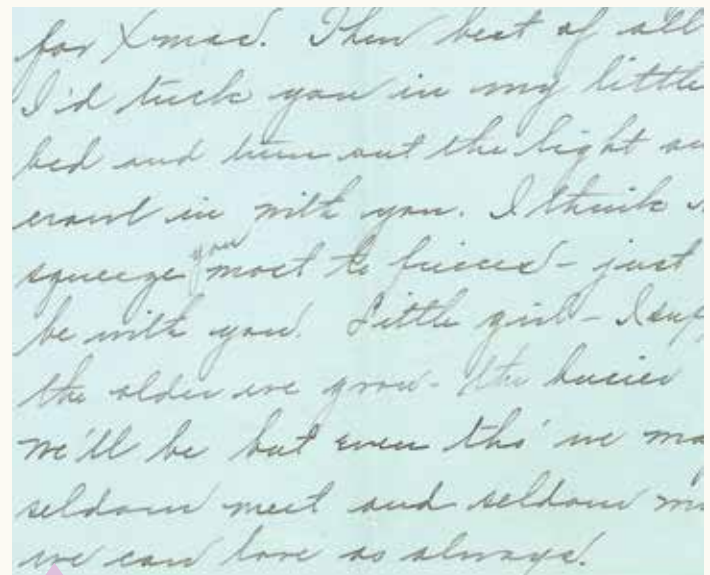 for Xmas. Then best of all
I'd tuck you in my little
bed and turn out the light an
crawl in with you. I think I
squeeze you most to pieces - just
be with you. Little girl - I sup
the older we grow - the busier
we'll be but even tho' we ma
seldom meet and seldom
we can love as always.